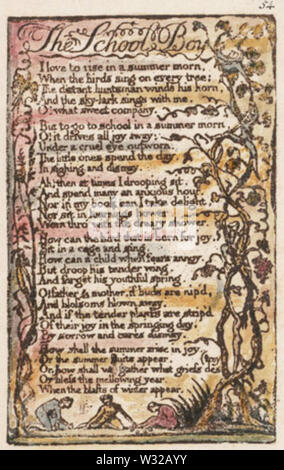 54
The School Boy
I love to rise in a summer morn,
When the birds sing on every tree;
The distant huntsman winds his horn,
And the sky-lark sings with me.
O! what sweet company.
But to go to school in a summer morn,
O! it drives all joy away;
Under a cruel eye outworn,
The little ones spend the day,
In sighing and dismay.
Ah! then at times I drooping sit,
And spend many an anxious hour,
Nor in my book can I take delight,
Nor sit in learnings bower,
Worn thro' with the dreary shower.
How can the bird that is born for joy,
Sit in a cage and sing,
How can a child when fears annoy,
But droop his tender wing,
And forget his youthful spring.
O! father & mother, if buds are nip'd,
And blossoms blown away,
And if the tender plants are strip'd
Of their joy in the springing day,
By sorrow and cares dismay,
How shall the summer arise in joy,
Or the summer fruits appear,
Or how shall we gather what griefs des
(troy
Or bless the mellowing year,
When the blasts of winter appear.
alamy
Image ID: W32AYY
www.alamy.com